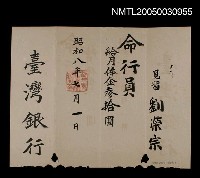 NMTL20050030955
見習 劉榮宗
命行員
給月俸金參拾圓
昭和八年七月一日
臺灣銀行